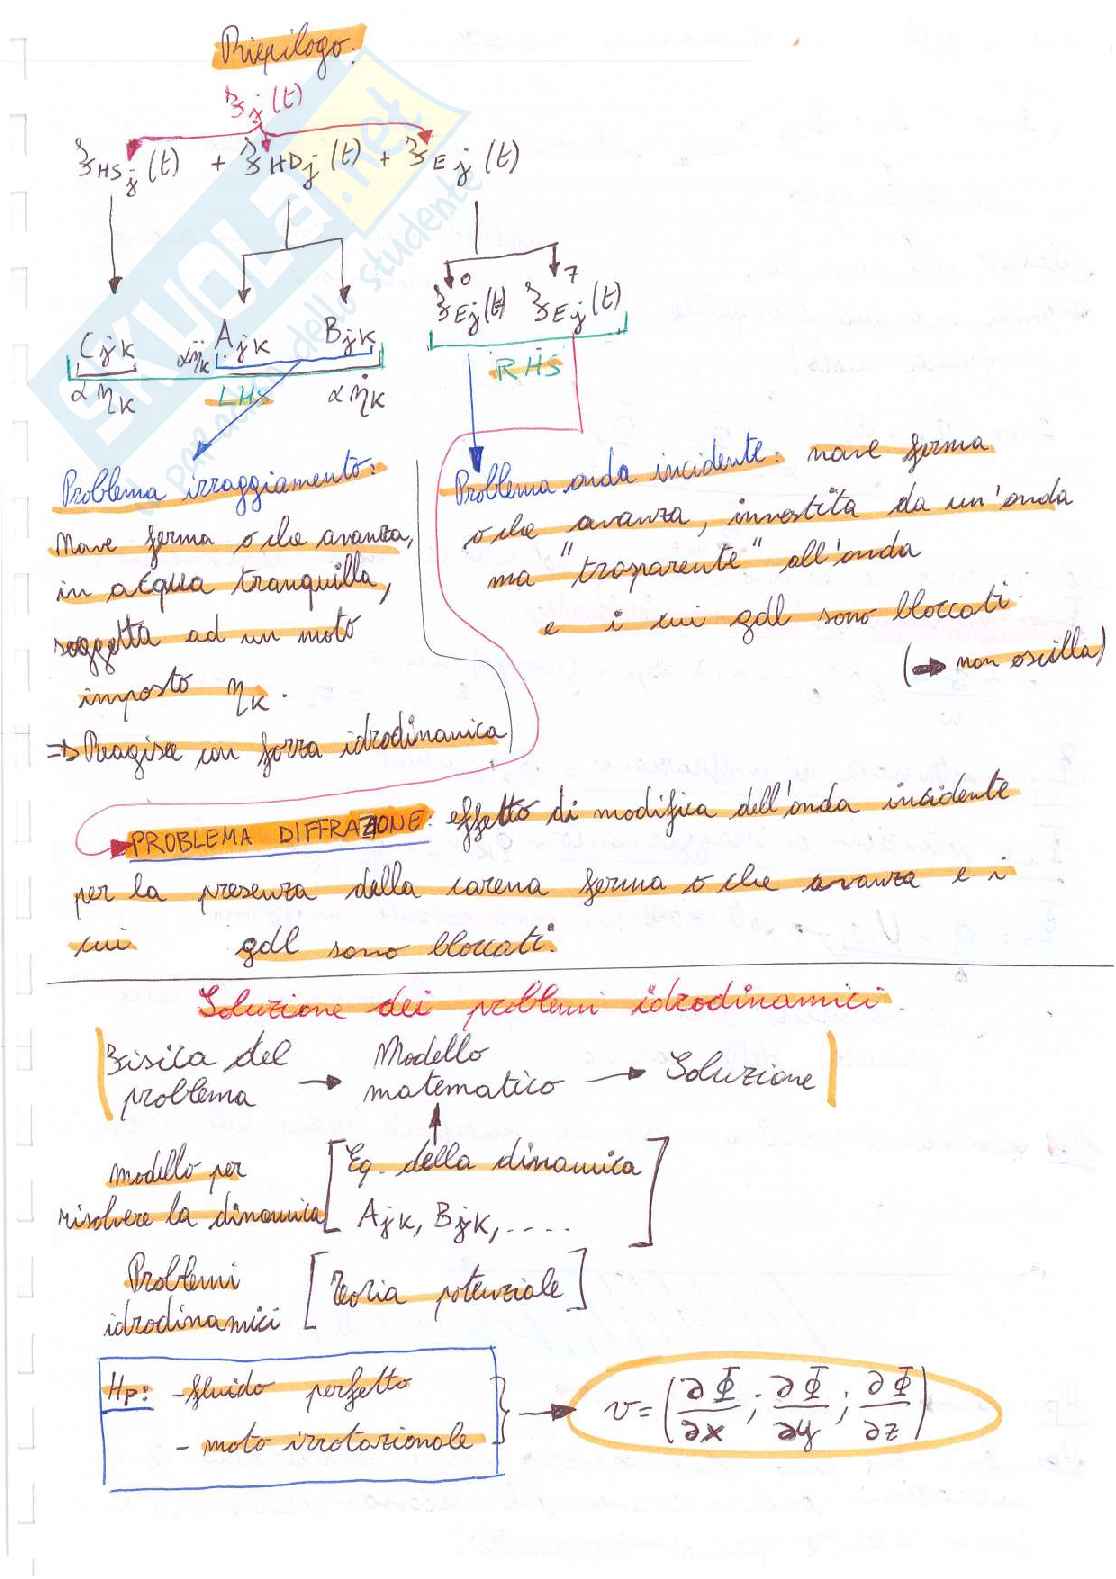 Riepilogo:
Fj(t)
FHSj(t) + FHDj(t) + FEj(t)
0 7
FEj(t) FEj(t)
Cjk αη̈k Ajk Bjk
αηk LHS αη̇k
RHS
Problema irraggiamento:
Nave ferma o che avanza,
in acqua tranquilla,
soggetta ad un moto
imposto ηk.
⇒ Reagisce con forza idrodinamica
Problema onda incidente: nave ferma
o che avanza, investita da un'onda
ma "trasparente" all'onda
e i cui gdl sono bloccati
(→ non oscilla)
PROBLEMA DIFFRAZIONE: effetto di modifica dell'onda incidente
per la presenza della carena ferma o che avanza e i
cui gdl sono bloccati.
Soluzione dei problemi idrodinamici.
Fisica del problema → Modello matematico → Soluzione
Modello per
risolvere la dinamica
[Eq. della dinamica
Ajk, Bjk, ....]
Problemi
idrodinamici
[Teoria potenziale]
Hp: - fluido perfetto
- moto irrotazionale
→ v = (∂Φ/∂x ; ∂Φ/∂y ; ∂Φ/∂z)
SKUOLA.net
paradiso dello studente